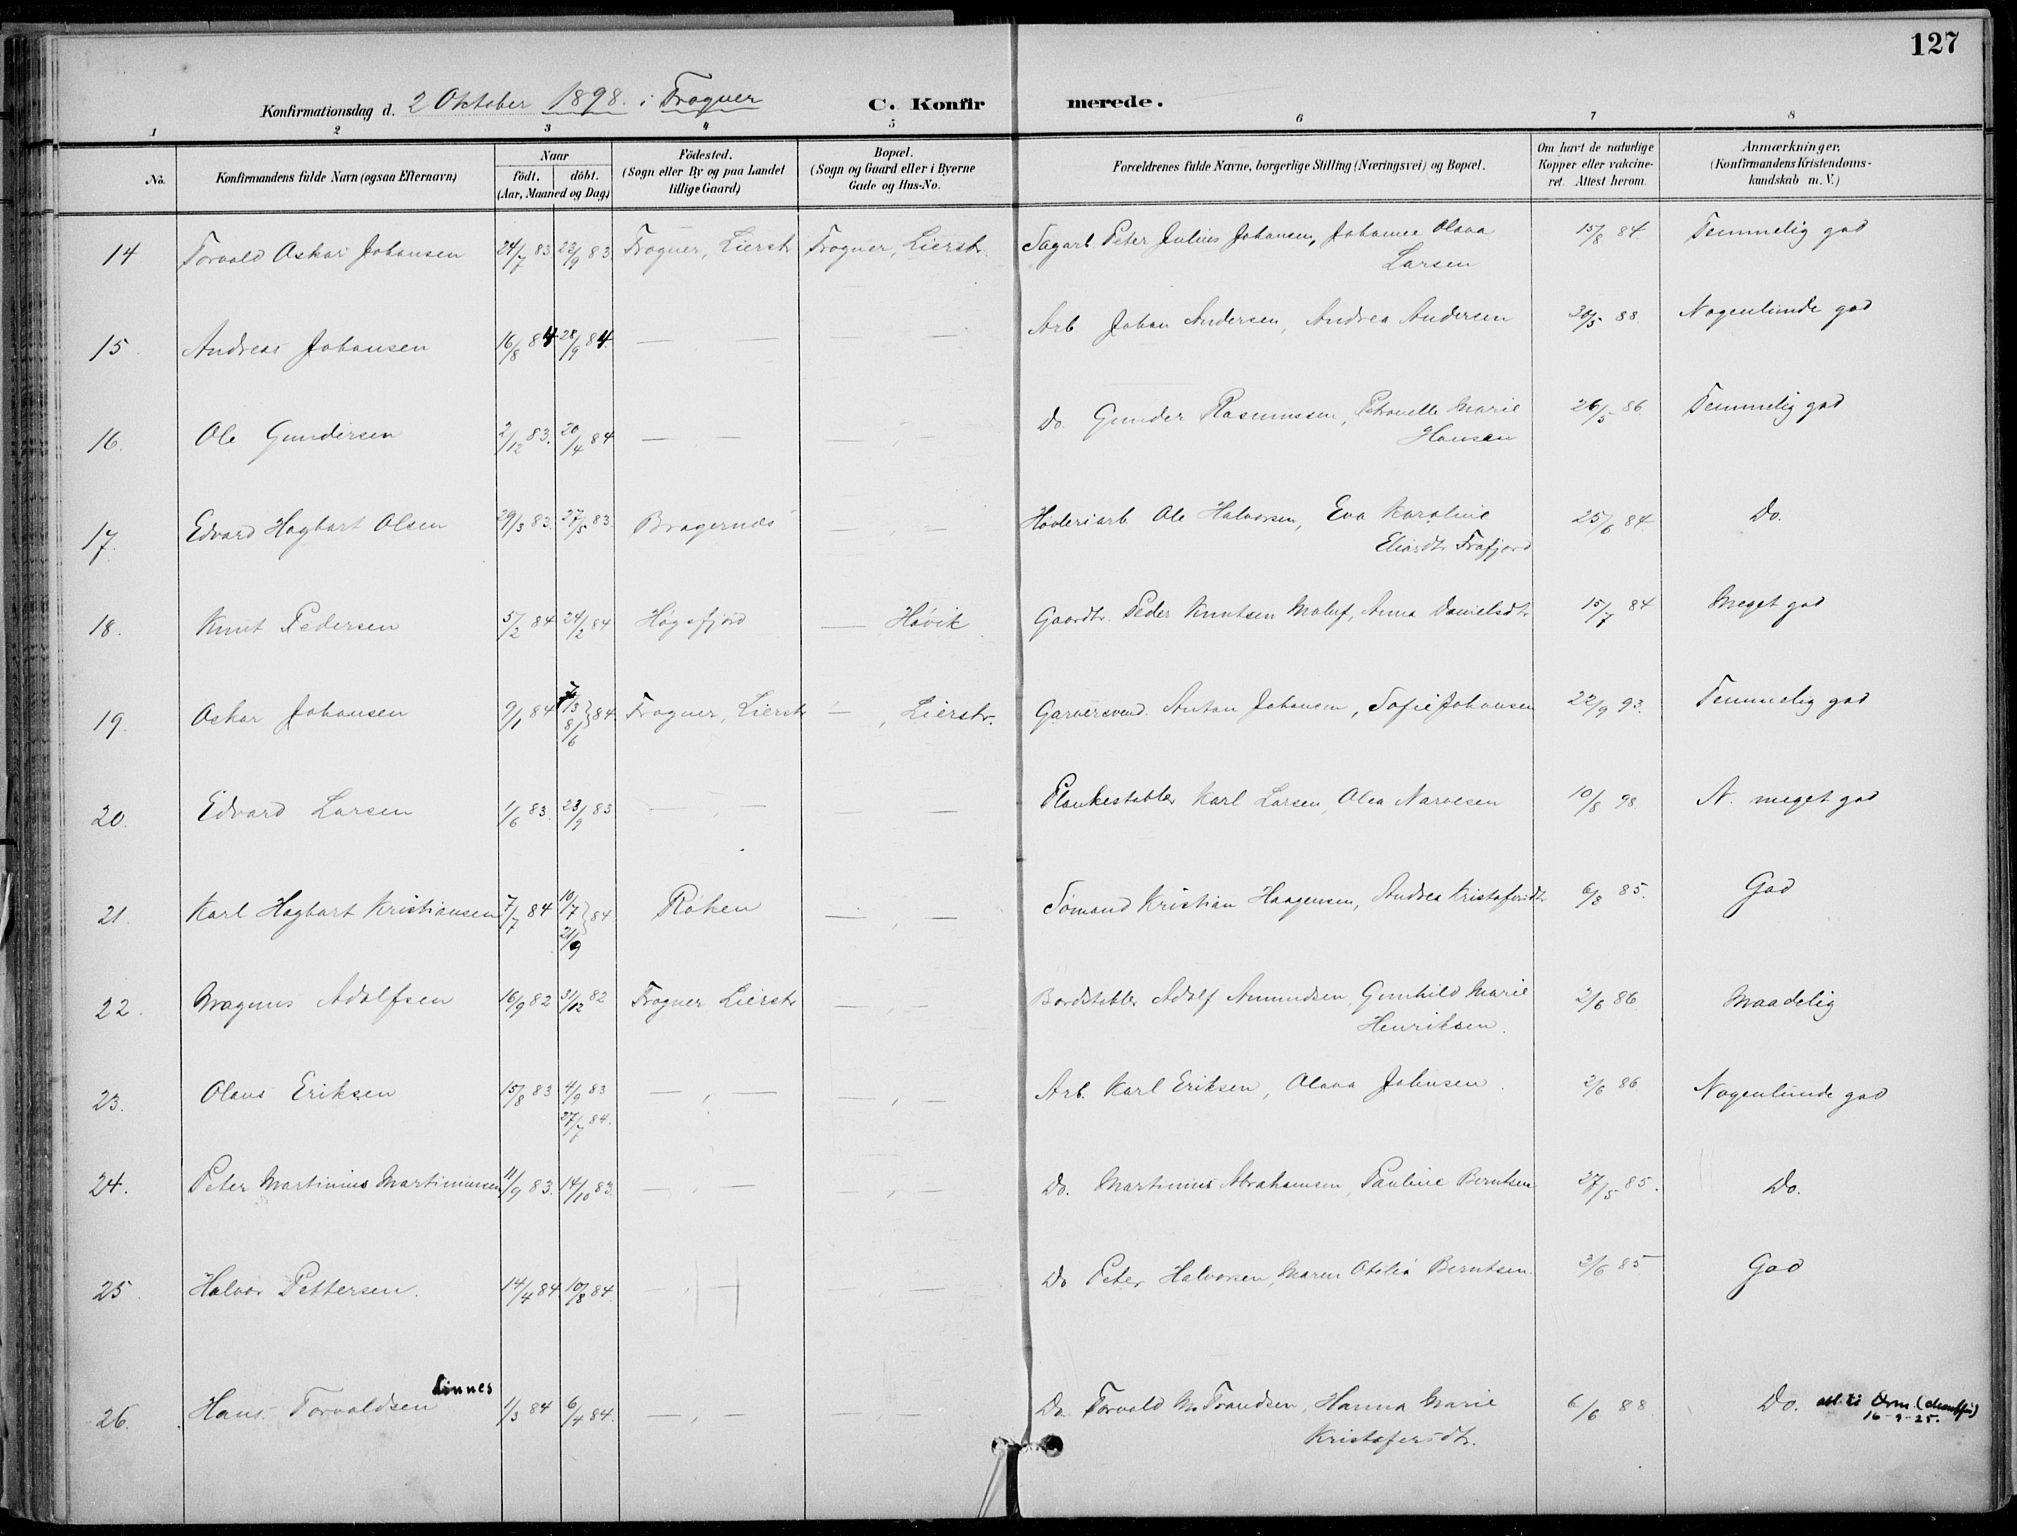 127
Konfirmationsdag d. 2 Oktober 1898. i Frogner C. Konfir merede.
1 2 3 4 5 6 7 8
No.
Konfirmandens fulde Navn (ogsaa Efternavn)
Naar
födt. döbt.
(Aar, Maaned og Dag)
Födested.
(Sogn eller By og paa Landet
tillige Gaard)
Bopæl.
(Sogn og Gaard eller i Byerne
Gade og Hus-No.
Forældrenes fulde Navne, borgerlige Stilling (Næringsvei) og Bopæl.
Om havt de naturlige
Kopper eller vakcine-
ret. Attest herom.
Anmærkninger.
(Konfirmandens Kristendoms-
kundskab m. V.)
14 Torvald Oskar Johansen 24/7 83 23/9 83 Frogner, Lierstr Frogner, Lierstr. Sagarb. Peter Julius Johansen, Johanne Olava 15/8 84 Temmelig god
Larsen
15. Andreas Johansen 16/8 84 28/9 84. — — — Arb Johan Andersen, Andrea Andersen 30/5 88. Nogenlunde god
16. Ole Gundersen 2/12 83. 20/4 84 — — — , — Do. Gunder Rasmussen, Petronelle Marie 26/5 86. Temmelig god
Hansen
17. Edvard Hagbart Olsen 29/3 83. 27/5 83. Bragernes — , — Høvleriarb Ole Halvorsen, Eva Karoline 25/6 84. Do.
Eliasdtr Frafjord
18. Knut Pedersen 5/2 84 24/2 84 Høgsfjord — Høvik Gaardbr. Peder Knutsen Maluf, Anna Danielsdtr 15/7 84 Meget god
19. Oskar Johansen 9/1 84 /3 } 84 Frogner, Lierstr — , Lierstr. Garversvend. Anton Johansen, Sofie Johansen 22/9 93. Temmelig god
8/6
20. Edvard Larsen 1/6 83. 23/9 83 — , — — — Plankestabler Karl Larsen, Olea Narvesen 10/8 98. N. meget god
21. Karl Hagbart Kristiansen 7/7 84 10/7 } 84 Røken — , — Sømand Kristian Haagensen, Andrea Kristofersdtr 6/3 85. God
21/9
22. Magnus Adolfsen 16/9 82 31/12 82 Frogner Lierstr — , — Bordstabler Adolf Amundsen, Gunhild Marie 2/6 86 Maadelig
Henriksen.
23. Olaus Eriksen 15/8 83 4/9 83 — , — — , — Arb. Karl Eriksen, Olava Johnsen. 2/6 86 Nogenlunde god
27/7 84.
24. Peter Martinius Martiniussen 11/9 83. 14/10 83. — , — — , — Do. Martinius Abrahamsen, Pauline Berntsen 27/5 85. Do.
25. Halvor Pettersen. 14/4 84 10/8 84. — , — — , — Do Peter Halvorsen, Maren Otilia Berntsen. 3/6 85 God
Linnes
26. Hans Torvaldsen 1/3 84 6/4 84. — , — — , — Do. Torvald M. Trandsen, Hanna Marie 6/6 88. Do.
16-9-25.
Kristofersdtr.